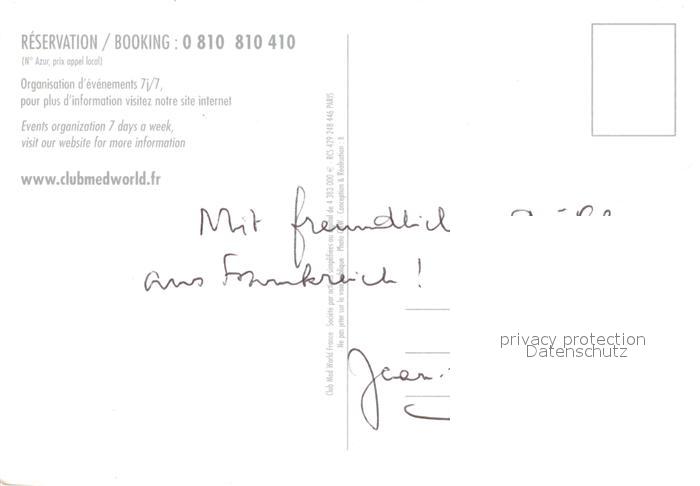 RÉSERVATION / BOOKING : 0 810 810 410
(N° Azur, prix appel local)
Organisation d'événements 7j/7,
pour plus d'information visitez notre site internet
Events organization 7 days a week,
visit our website for more information
www.clubmedworld.fr
Mit freundlich
aus Frankreich !
Jean-
Club Med World France Société par actions simplifiées au capital de 4 383 000 € RCS 429 248 446 PARIS
Ne pas jeter sur la voie publique Photo Conception & Réalisation :
privacy protection
Datenschutz